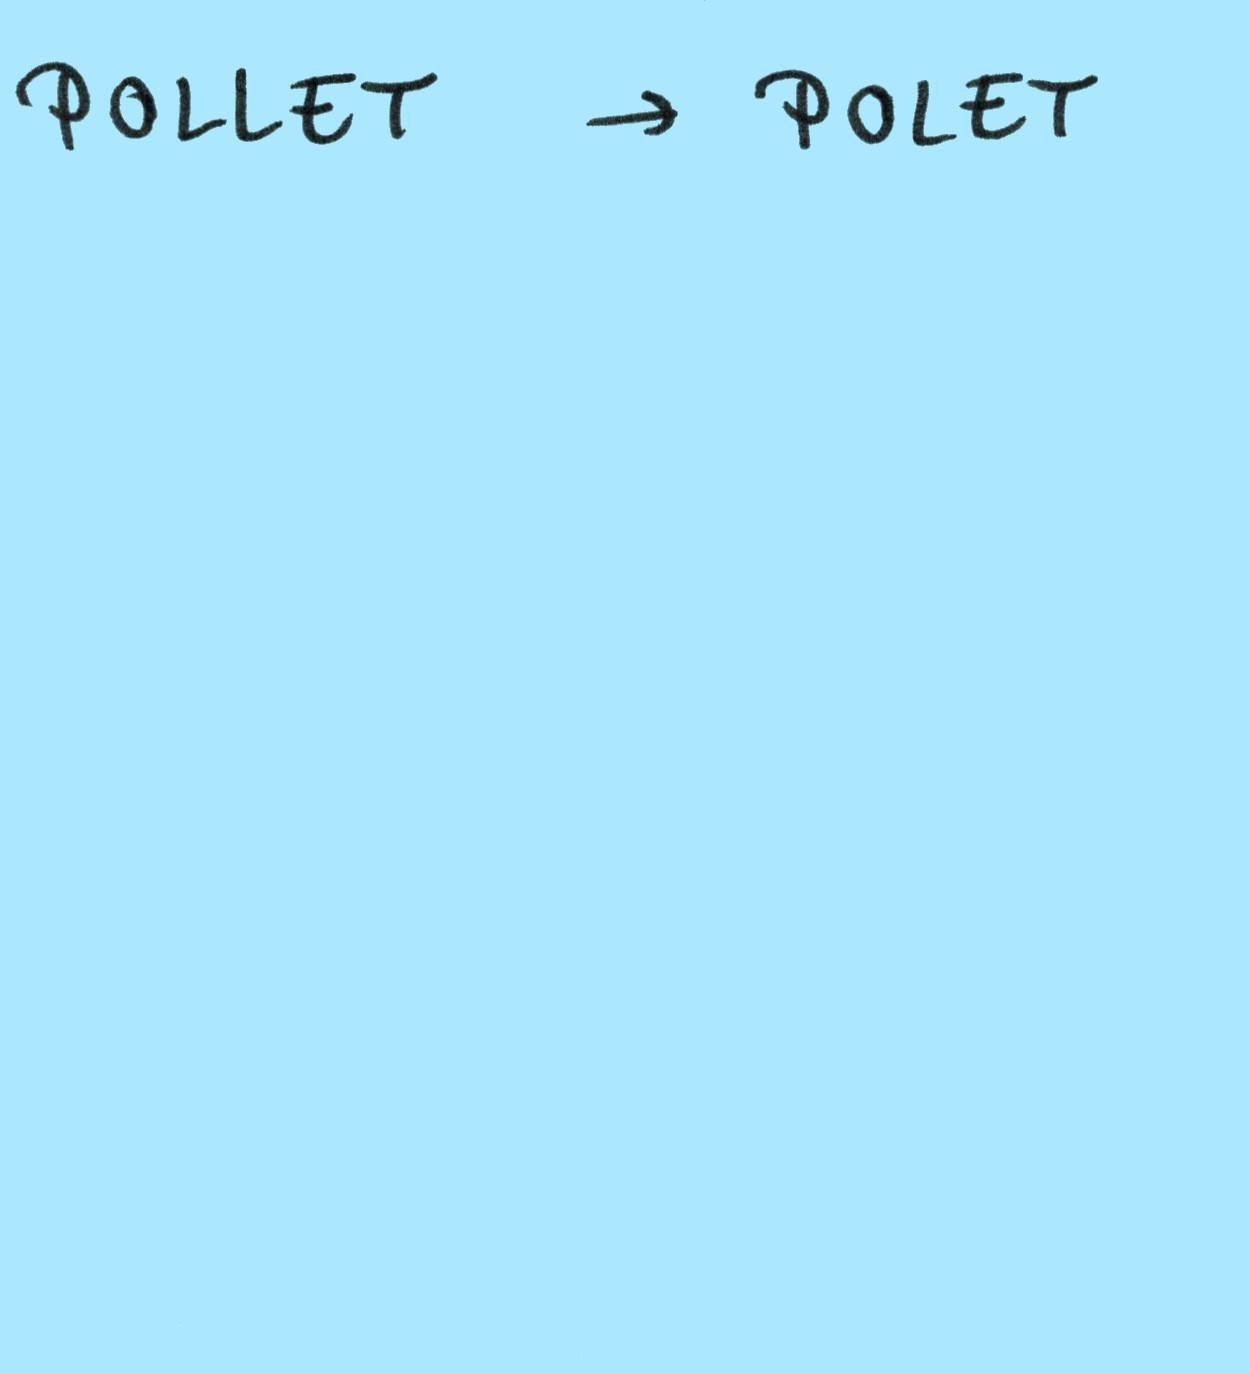 POLLET → POLET